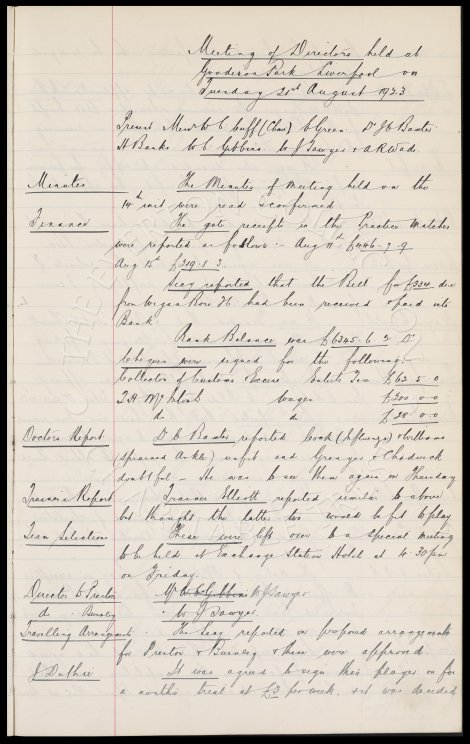 Meeting of Directors held at
Goodison Park Liverpool on
Tuesday 21st August 1923
Present Messrs W C Cuff (Chair) E Green Dr J C Baxter
H Banks W E Gibbins W J Sawyer & A R Wade
Minutes The Minutes of Meeting held on the
14th inst were read & confirmed
Finance The gate receipts in the Practice Matches
were reported as follows:- Aug 11th £446-7-9
Aug 15th £219-1-3
Secy reported that the Bill for £334 due
from Wigan Boro FC had been received & paid into
Bank
Bank Balance was £6345-6-2 Dr
Cheques were signed for the following:-
Collector of Customs & Excise Ents Tax £62-5-0
T. H. McIntosh wages £200-0-0
do do £28-0-0
Doctors Report Dr Baxter reported Cock (Influenza) & Williams
(sprained Ankle) unfit and Grenyer & Chadwick
doubtful - He was to see them again on Thursday
Trainers Report Trainer Elliott reported similar to above
but thought the latter two would be fit to play
Team Selection These were left over to a special meeting
to be held at Exchange Station Hotel at 4.30 pm
on Friday.
Director to Preston Mr W E Gibbins W J Sawyer
do - Burnley W J Sawyer.
Travelling Arrangements. The Secy reported on proposed arrangements
for Preston & Burnley & these were approved.
J Duthie It was agreed to sign this player on for
a months trial at £3 per week, & it was decided